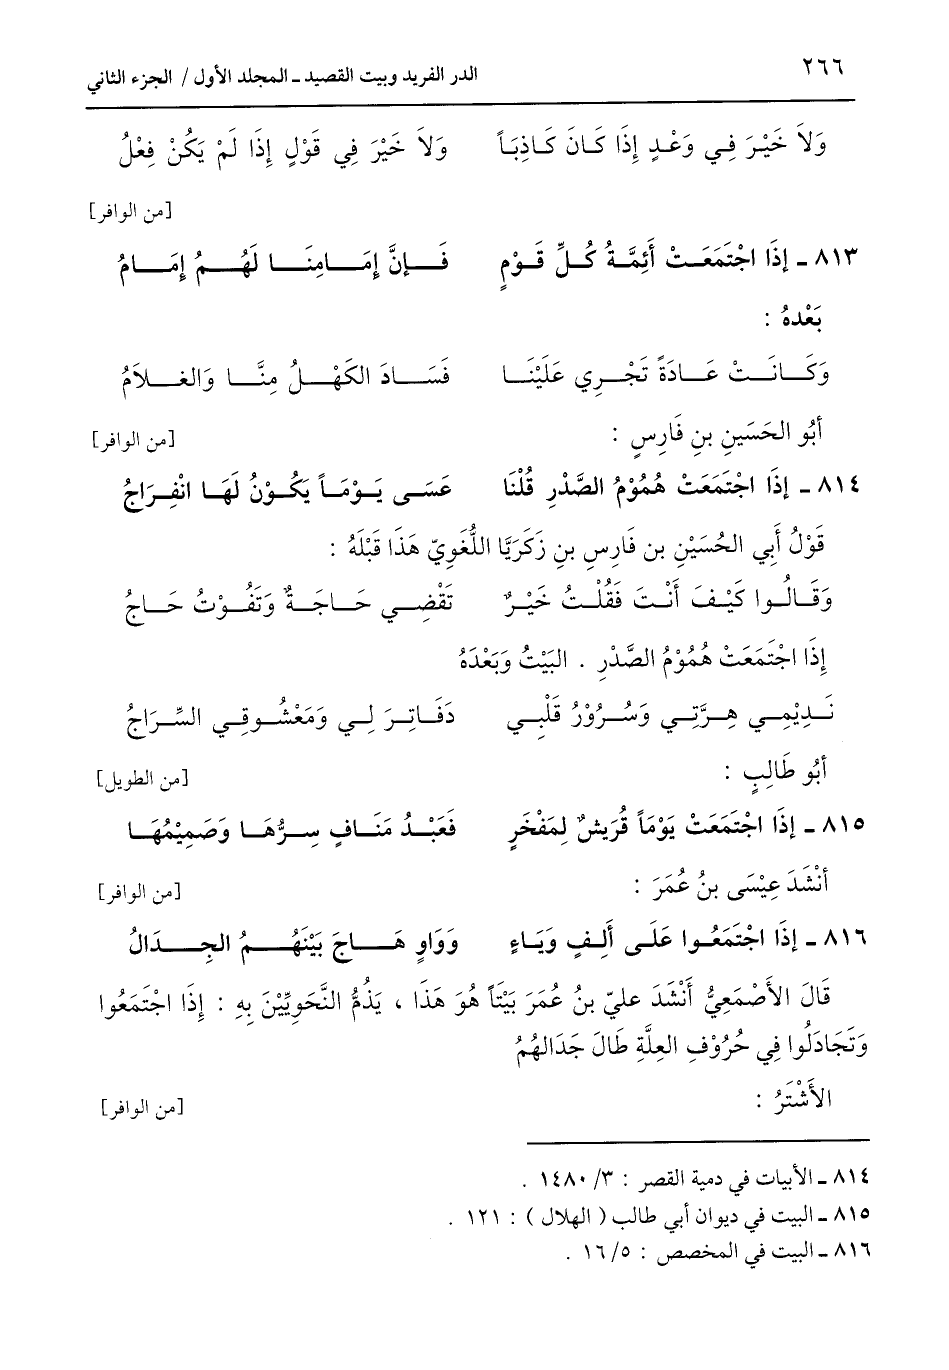 ٢٦٦ الدر الفريد وبيت القصيد - المجلد الأول / الجزء الثاني
وَلاَ خَيْرَ فِي وَعْدٍ إِذَا كَانَ كَاذِبَاً وَلاَ خَيْرَ فِي قَوْلٍ إِذَا لَمْ يَكُنْ فِعْلُ
[من الوافر]
٨١٣ - إِذَا اجْتَمَعَتْ أَئِمَّةُ كُلِّ قَوْمٍ فَإِنَّ إِمَامِنَا لَهُمُ إِمَامُ
بَعْدهُ :
وَكَانَتْ عَادَةً تَجْرِي عَلَيْنَا فَسَادَ الكَهْلُ مِنَّا وَالغلاَمُ
أَبُو الحَسَينِ بنِ فَارِسٍ : [من الوافر]
٨١٤ - إِذَا اجْتَمَعَتْ هُمُوْمُ الصَّدْرِ قُلْنَا عَسَى يَوْمَاً يَكُوْنُ لَهَا انْفِرَاجُ
قَوْلُ أَبِي الحُسَيْنِ بن فَارِسِ بنِ زَكَرِيَّا اللُّغَوِيّ هَذَا قَبْلَهُ :
وَقَالُوا كَيْفَ أَنْتَ فَقُلْتُ خَيْرٌ تَقْضِي حَاجَةٌ وَتَفُوْتُ حَاجُ
إِذَا اجْتَمَعَتْ هُمُوْمُ الصَّدْرِ . البَيْتُ وَبَعْدَهُ
نَدِيْمِي هِرَّتِي وَسُرُوْرُ قَلْبِي دَفَاتِرَ لِي وَمَعْشُوقِي السِّرَاجُ
أَبُو طَالِبٍ : [من الطويل]
٨١٥ - إِذَا اجْتَمَعَتْ يَوْمَاً قُرَيشٌ لِمَفْخَرٍ فَعَبْدُ مَنَافٍ سِرُّهَا وَصَمِيْمُهَا
أَنْشَدَ عِيْسَى بنُ عُمَرَ : [من الوافر]
٨١٦ - إِذَا اجْتَمَعُوا عَلَى أَلِفٍ وَيَاءٍ وَوَاوٍ هَاجَ بَيْنَهُمُ الجِدَالُ
قَالَ الأَصْمَعِيُّ أَنْشَدَ عليّ بنُ عُمَرَ بَيْتَاً هُوَ هَذَا ، يَذُمُّ النَّحَوِيِّيْنَ بِهِ : إِذَا اجْتَمَعُوا
وَتَجَادَلُوا فِي حُرُوْفِ العِلَّةِ طَالَ جَدَالهُمُ
الأَشْتَرُ : [من الوافر]
٨١٤ - الأبيات في دمية القصر : ٣/ ١٤٨٠ .
٨١٥ - البيت في ديوان أبي طالب ( الهلال ) : ١٢١ .
٨١٦ - البيت في المخصص : ٥/ ١٦ .